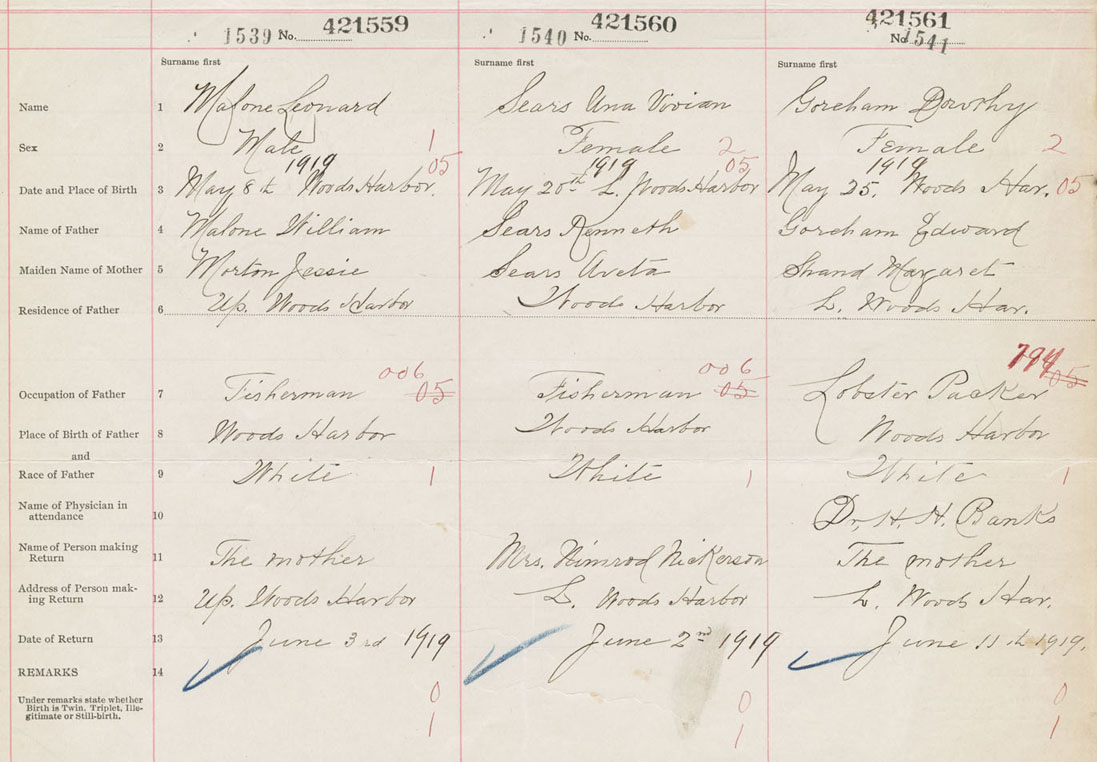 1539 No. 421559 1540 No. 421560 421561
No. 1541
Surname first Surname first Surname first
Name 1 Malone Leonard Sears Una Vivian Goreham Dorothy
Sex 2 Male 1 Female 2 Female 2
1919 05 1919 05 1919
Date and Place of Birth 3 May 8th Woods Harbor. May 20th L. Woods Harbor May 25. Woods Har. 05
Name of Father 4 Malone William Sears Kenneth Goreham Edward
Maiden Name of Mother 5 Morton Jessie Sears Aveta Shand Margaret
Residence of Father 6 Up. Woods Harbor Woods Harbor L. Woods Har.
006 006 794
Occupation of Father 7 Fisherman 05 Fisherman 05 Lobster Packer 05
Place of Birth of Father 8 Woods Harbor Woods Harbor Woods Harbor
and
Race of Father 9 White 1 White 1 White 1
Name of Physician in
attendance 10 Dr. H. H. Banks
Name of Person making
Return 11 The mother Mrs. Nimrod Nickerson The mother
Address of Person mak-
ing Return 12 Up. Woods Harbor L. Woods Harbor L. Woods Har.
Date of Return 13 June 3rd 1919 June 2nd 1919 June 11th 1919.
REMARKS 14
Under remarks state whether 0 0 0
Birth is Twin, Triplet, Ille-
gitimate or Still-birth. 1 1 1